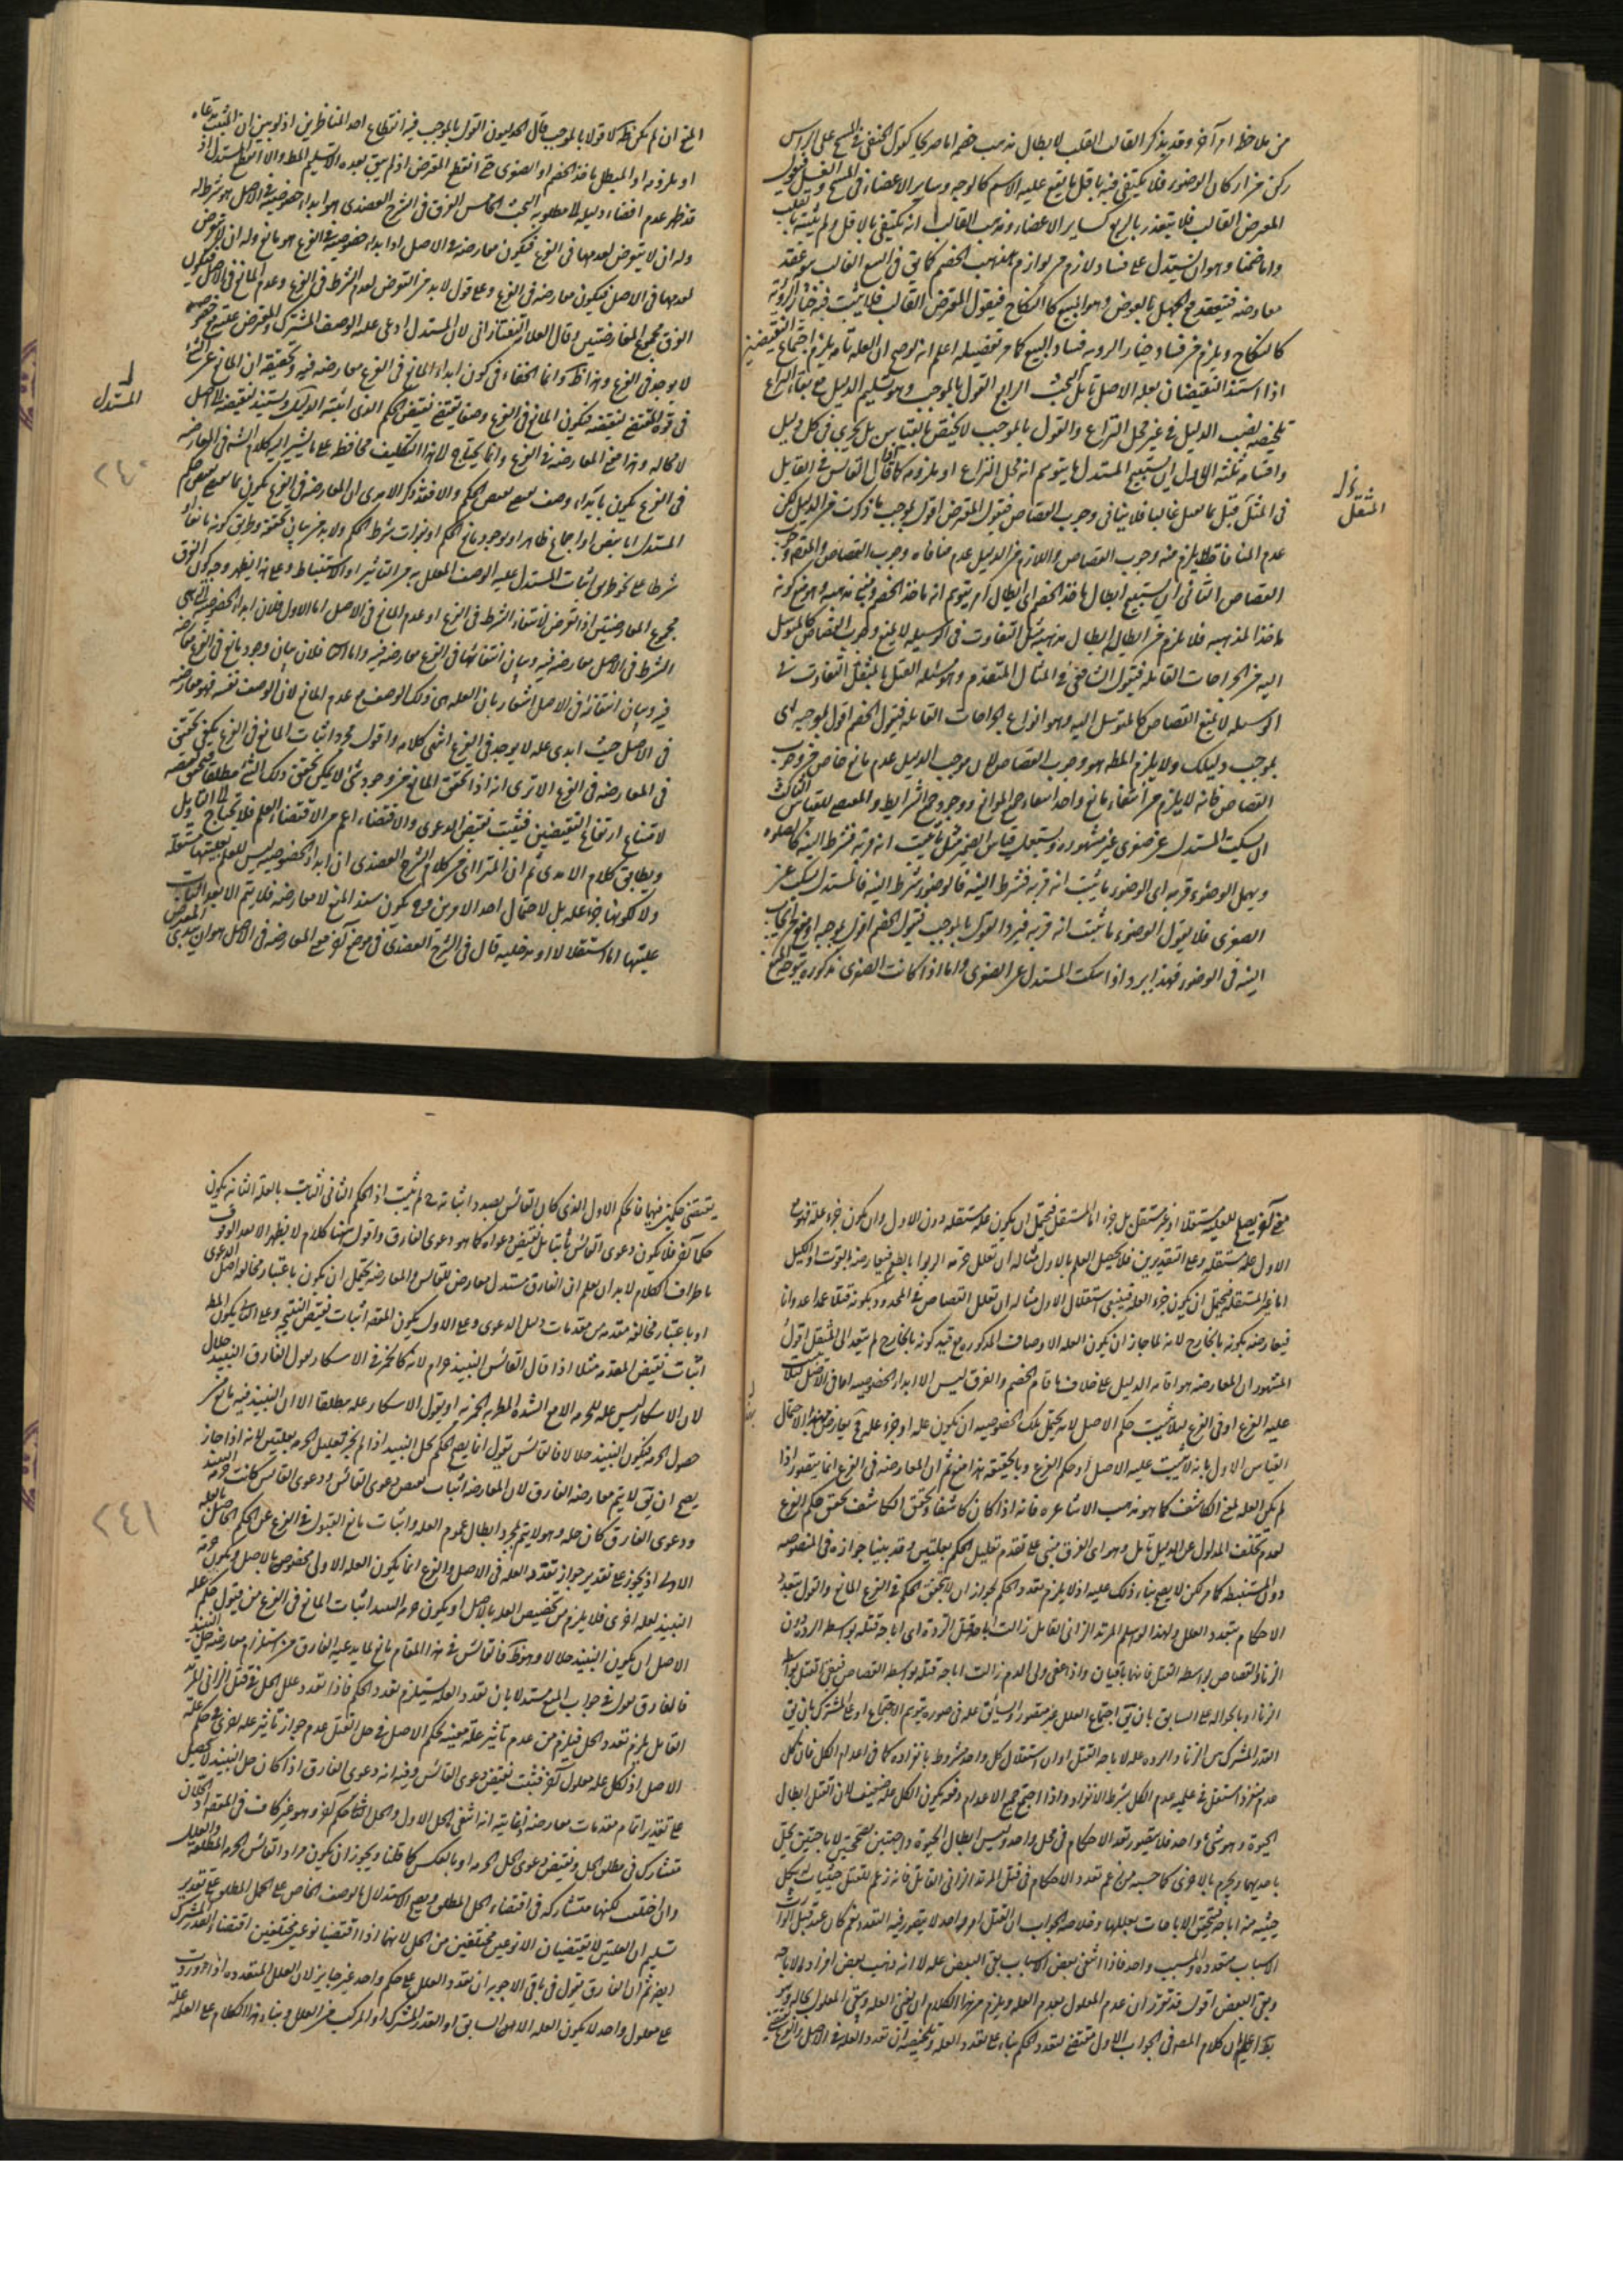 من ملاحظة امر آخر وقد يذكر القالب القلب لابطال مذهب خصمه اما صريحا كقول الحنفى فى المسح على الراس
ركن من اركان الوضوء فلا يكتفى فيه باقل ما يقع عليه الاسم كالوجه وساير الاعضاء فى المسح والغسل فيقول
المعترض القالب فلا يتقدر بالربع كساير الاعضاء ومذهب القالب انه يكتفى بالاقل ولم يثبته بالقلب
واما ضمنا وهو ان يستدل على فساد لازم من لوازم مذهب الخصم كما يق فى البيع الغايب هو عقد
معاوضه فينعقد مع الجهل بالعوض وهو المبيع كما النكاح فيقول المعترض القالب فلا يثبت فيه خيار الرؤيه
كالنكاح ويلزم من فساد خيار الرويه فساد البيع كما مر تفصيله اعلم انه لو صح ان العله تامه يلزم اجتماع النقيضين
اذا استند النقيضان بعله الاصل تامل البحث الرابع القول بالموجب وهو تسليم الدليل مع بقاء النزاع
تلخيصه نصب الدليل فى غير محل النزاع والقول بالموجب لا يختص بالقياس بل يجرى فى كل دليل
واقسامه ثلثه الاول ان يستنتج المستدل ما يتوهم انه محل النزاع او ملزومه كما قال القائس فى القايل
فى المثل قتل بما يعمل غالبا فلا ينافى وجوب القصاص فيقول المعترض اقول بموجب ما ذكرت من الدليل لكن
عدم المنافاة لا يلزم منه وجوب القصاص واللازم من الدليل عدم منافاه وجوب القصاص والمقصود وجوب
القصاص الثانى ان يستنتج ابطال ما خذ الخصم اى ابطال امر يتوهم انه ماخذ الخصم ومبنى مذهبه وهو منع كونه
ماخذا لمذهبه فلا يلزم من ابطاله ابطال مذهبه مثل التفاوت فى الوسيله لا يمنع وجوب القصاص كالمتوسل
اليه من الجراحات القاتله فيقول الشافعى فى المثال المتقدم وهو مسئله القتل بالمثقل التفاوت فى
الوسيله لا يمنع القصاص كالمتوسل اليه وهو انواع الجراحات القاتله فيقول الخصم اقول بموجبه اى
بموجب دليلك ولا يلزم المط وهو وجوب القصاص لان موجب الدليل عدم مانع خاص من وجوب
القصاص فانه لا يلزم من انتفاء مانع واحد انتفاء جميع الموانع ووجود جميع الشرايط والمقتضى للقياس الثالث
ان يسكت المستدل عن صغرى غير مشهوره ويستعمل قياس الضمير مثل ما ثبت انه قربه فشرطه النيه كالصلوه
ويهمل الوضوء قربه اى الوضوء ما يثبت انه قربه فشرطه النيه فالوضوء شرطه النيه فالمستدل سكت عن
الصغرى فلا يقول الوضوء ما ثبت انه قربه فيرد القول بالموجب فيقول الخصم اقول بموجبه وامنع ايجاب
النيه فى الوضوء فهذا يرد اذا سكت المستدل عن الصغرى واما اذا كانت الصغرى مذكوره يتوجه المنع
المثقل
المنع ان لم يكن ظ كلا قولا بالموجب قال الجدليون القول بالموجب فيه انقطاع احد المتناظرين اذ لو بين ان المثبت مدعاه
او ملزومه او المبطل ماخذ الخصم او الصغرى حق انقطع المعترض اذ لم يبق بعده الا تسليم المط والا انقطع المستدل اذ
قد ظهر عدم افضاء دليله الى مطلوبه البحث الخامس الفرق فى الشرح العضدى هو ابداء خصوصيه فى الاصل هو شرط له
وله ان لا يتعرض لعدمها فى الفرع فيكون معارضه فى الاصل او ابداء خصوصيه فى الفرع هو مانع وله ان لا يتعرض
لعدمها فى الاصل فيكون معارضه فى الفرع وعلى قول لا بد من التعرض لعدم الشرط فى الفرع وعدم المانع فى الاصل فيكون
الفرق مجموع المعارضتين وقال العلامه التفتازانى لان المستدل ادعى عليه الوصف المشترك والمعترض عليته مع خصوصيه
لا يوجد فى الفرع وهذا ظ وانما الخفاء فى كون ابداء المانع فى الفرع معارضه فيه وتحقيقه ان المانع عن الشئ
فى قوة المقتضى لنقيضه فيكون المانع فى الفرع وصفا يقتضى نقيض الحكم الذى اثبته الدليل ويستند لنقيضه الى اصل
لا محاله وهذا معنى المعارضه فى الفرع وانما يحتاج الى هذا التكليف محافظه على ما يشير اليه كلام الشه فى المعارضه
فى الفرع يكون بابداء وصف يقتضى نقيض الحكم والا فقد ذكر الامدى ان المعارضه فى الفرع تكون بما يقتضى نقيض حكم
المستدل اما بنص او اجماع ظاهر او بوجود مانع الحكم او بفوات شرط الحكم ولا بد من بيان تحققه وطريق كونه مانعا او
شرطا على نحو طريق اثبات المستدل عليه الوصف المعلل به من التاثير او الاستنباط وعلى هذا يظهر وجه كون الفرق
مجموع المعارضتين اذا تعرض لانتفاء الشرط فى الفرع او عدم المانع فى الاصل اما الاول فلان ابداء الخصوصيه التى هى
الشرط فى الاصل معارضه فيه وبيان انتفائها فى الفرع معارضه فيه واما الثانى فلان بيان وجود مانع فى الفرع معارضه
فيه وبيان انتفائه فى الاصل اشعار بان العله هى ذلك الوصف مع عدم المانع لان الوصف نفسه فهو معارضه
فى الاصل حيث ابدى عله لا يوجد فى الفرع انتهى كلامه واقول مجرد اثبات المانع فى الفرع يكفى تحقق
فى المعارضه فى الفرع الا ترى انه اذا تحقق المانع من وجود شئ لا يمكن تحقق ذلك الشئ مطلقا فتحقق نقيضه
لامتناع ارتفاع النقيضين فيثبت نقيض الدعوى والاقتضاء اعم من الاقتضاء العلم فلا تحتاج الى التاويل
ويطابق كلام الامدى ثم ان المترااى من كلام الشرح العضدى ان ابداء الخصوصيه ليس للعلم بعليتها مستقله
ولا لكونها جزء عله بل لاحتمال احد الامرين فح يكون سند المنع لا معارضه فلا يتم الا بعد اثبات
عليتها اما استقلالا او مدخليه قال فى الشرح العضدى فى موضع آخر معنى المعارضه فى الاصل هو ان يبدى المعترض
المستدل
٢٤٠
معنى آخر يصلح للعليه مستقلا او غير مستقل بل جزء اما المستقل فيحتمل ان يكون عله مستقله دون الاول وان يكون جزء عله فهو مع
الاول عله مستقله وعلى التقديرين فلا يحصل العلم بالاول مثاله ان تعلل حرمه الربوا بالطعم فيعارضه بالقوت او الكيل
اما غير المستقله فيحتمل ان يكون جزء العله فينتفى استقلال الاول مثاله ان تعلل القصاص فى المحدد بكونه قتلا عمدا عدوانا
فيعارضه بكونه بالجارح لانه لما جاز ان يكون العله الاوصاف المذكوره مع قيد كونه بالجارح لم يتعد الى المثقل اقول
المشهور ان المعارضه هو اقامه الدليل على خلاف ما اقام الخصم والفرق ليس الا ابداء الخصوصيه اما فى الاصل لئلا
عليه الفرع او فى الفرع لئلا يثبت حكم الاصل لانه يحتمل تلك الخصوصيه ان يكون عله او جزء عله فح يعارض بهذا الاحتمال
القياس الاول بانه لا يثبت عليه الاصل او حكم الفرع وبالحقيقه هذا منع ثم ان المعارضه فى الفرع انما يتصور اذا
لم يكن العله لمعنى الكاشف كما هو مذهب الاشاعره فانه اذا كان كاشفا وتحقق الكاشف تحقق حكم الفرع
لعدم تخلف المدلول عن الدليل تامل وهو اى الفرق مبنى على تقدم تعليل الحكم بعلتين وقد بينا جوازه فى المنصوصه
دون المستنبطه كما مر لكن لا يصح بناء ذلك عليه اذ لا يلزم تعدد الحكم لجواز ان لا يتحقق الحكم فى الفرع المانع والقول بتعدد
الاحكام بتعدد العلل ولهذا لو اسلم المرتد الزانى القاتل زالت اباحه قتل الرده اى اباحه قتله بواسطه الرده دون
الزنا والقصاص بواسطه القتل فانهما باقيان واذا عفى ولى الدم زالت اباحه قتله بواسطه القصاص فيبقى القتل بواسطه
الزنا او بالحواله على السابق بان يق اجتماع العلل غير متصور والسابق عله فى صوره يتوهم الاجتماع او على المشترك بان يق
القدر المشترك بين الزنا والرده عله لاباحه القتل او ان استقلال كل واحد مشروط بانفراده كما فى اعدام الكل فان كل
عدم منفردا مستقل فى عليه عدم الكل بشرط الانفراد واذا اجتمع جميع الاعدام دفعه يكون الكل عله ضعيف لان القتل ابطال
الحيوة وهو شئ واحد فلا يتصور تعدد الاحكام فى محل واحد وليس ابطال الحيوة ذا جهتين بصحتين لا باجتهين يحل
باحديهما ويحرم بالاخرى كما حسبه من زعم تعدد الاحكام فى قتل المرتد الزانى القاتل فانه زعم للقتل حيثيات لكل
حيثيه منه اباحه فيتحقق الاباحات بعللها وخلاصه الجواب ان القتل امر واحد لا يتصور فيه التعدد نعم كان عند قتل الوارث
الاسباب متعدده والمسبب واحد فاذا انتفى بعض الاسباب بقى البعض عله لا انه ذهب بعض افراد الاباحه
وبقى البعض اقول قد تقرر ان عدم المعلول بعدم العله ويلزم من هذا الكلام ان يفنى العله ويبقى المعلول بحاله وهو
بط اعلم ان كلام المصه فى الجواب الاول مقتضى لتعدد الحكم بناء على تعدد العله وتلخيصه ان تعدد العله فى الاصل والفرع
يقتضى حكمين فيهما فالحكم الاول الذى كان القائس بصدد اثباته لم يثبت اذ الحكم الثانى الثابت بالعله الثانيه يكون
حكما آخر فلا يكون دعوى القائس ثابتا بل نقيض دعواه كما هو دعوى الفارق واقول ههنا كلام لا يظهر الا بعد الوقوف
باطراف الكلام لا بد ان يعلم ان الفارق مستدل معارض للقائس والمعارضه يحتمل ان يكون باعتبار مخالفه اصل الدعوى
او باعتبار مخالفه مقدمه من مقدمات دليل الدعوى وعلى الاول يكون المقصه اثبات نقيض النتيجه وعلى الثانى يكون المط
اثبات نقيض المقدمه مثلا اذا قال القائس النبيذ حرام لانه كالخمر فى الاسكار يقول الفارق النبيذ حلال
لان الاسكار ليس عله للحرمه الا مع الشده المطربه الخمريه او يقول الاسكار عله مطلقا الا ان النبيذ فيه مانع من
حصول الحرمه فيكون النبيذ حلالا فالقائس يقول انما يصح الحكم بحل النبيذ اذا لم يجز تعليل الحرمه بعلتين لانه اذا جاز
يصح ان يق لا يتم معارضه الفارق لان المعارضه اثبات نقيض دعوى القائس ودعوى القائس كانت حرمه النبيذ
ودعوى الفارق كان حله وهو لا يتم بمجرد ابطال عموم العله واثبات مانع القبول فى الفرع عن الحكم الحاصل بالعله
الاولى اذ يجوز على تقدير جواز تعدد العله فى الاصل والفرع انما يكون العله الاولى مخصوصا بالاصل ويكون حرمه
النبيذ لعله اخرى فلا يلزم من تخصيص العله بالاصل او يكون حرمه النبيذ اثبات المانع فى الفرع من قبول حكم عله
الاصل ان يكون النبيذ حلالا وهو ظ فالقائس فى هذا المقام مانع لما يدعيه الفارق من استلزام معارضته حل النبيذ
فالفارق يقول فى جواب المنع مستدلا بان تعدد العله يستلزم تعدد الحكم فاذا تعدد علل الحل فى قتل الزانى المرتد
القاتل يلزم تعدد الحل فيلزم من عدم تاثير عله معينه لحكم الاصل فى حل القتل عدم جواز تاثير عله اخرى فى حكم عله
الاصل اذ لكل عله معلول آخر فثبت نقيض دعوى القائس وفيه انه دعوى الفارق اذا كان حل النبيذ لا يحصل
على تقدير اتمام مقدمات معارضه نهايته انه انتفى الحل الاول والحل الثانى حكم آخر وهو غير كاف فى المقصه اذ الحلان
متشارك فى مطلق الحل ونقيض دعوى الحل الحرمه او بالعكس كما ظننا ويجوز ان يكون مراد القائس الحرمه المطلقه والعلل
وان اختلف لكنها متشاركه فى اقتضاء الحل المطلق ويصح الاستدلال بالوصف الخاص على الحل المطلق على تقدير
تسليم ان العلتين لا يقتضيان الا نوعين مختلفين من الحل لانهما اذا اقتضيا نوعين مختلفين اقتضاء القدر المشترك
ايضا ثم ان الفارق يقول فى باقى الاجوبه ان تعدد العلل على حكم واحد غير جايز لان العلل المتعدده اذا توردت
على معلول واحد لا يكون العله الا هى السابق او القدر المشترك او المركب من العلل وبناء هذا الكلام على العله
٢٤١